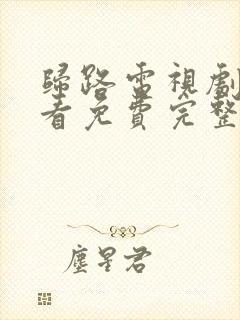 歸路電視劇
看免費完整
塵星君